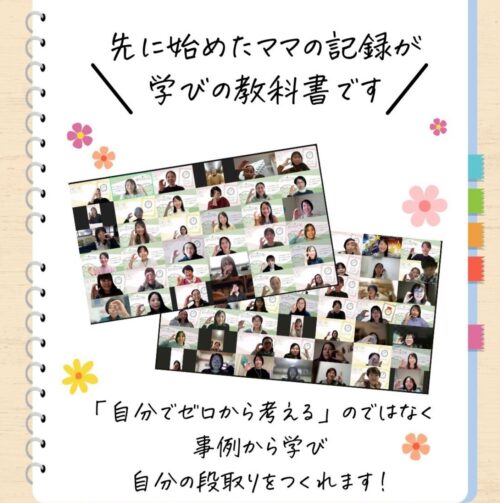 先に始めたママの記録が
学びの教科書です
「自分でゼロから考える」のではなく
事例から学び
自分の段取りをつくれます！